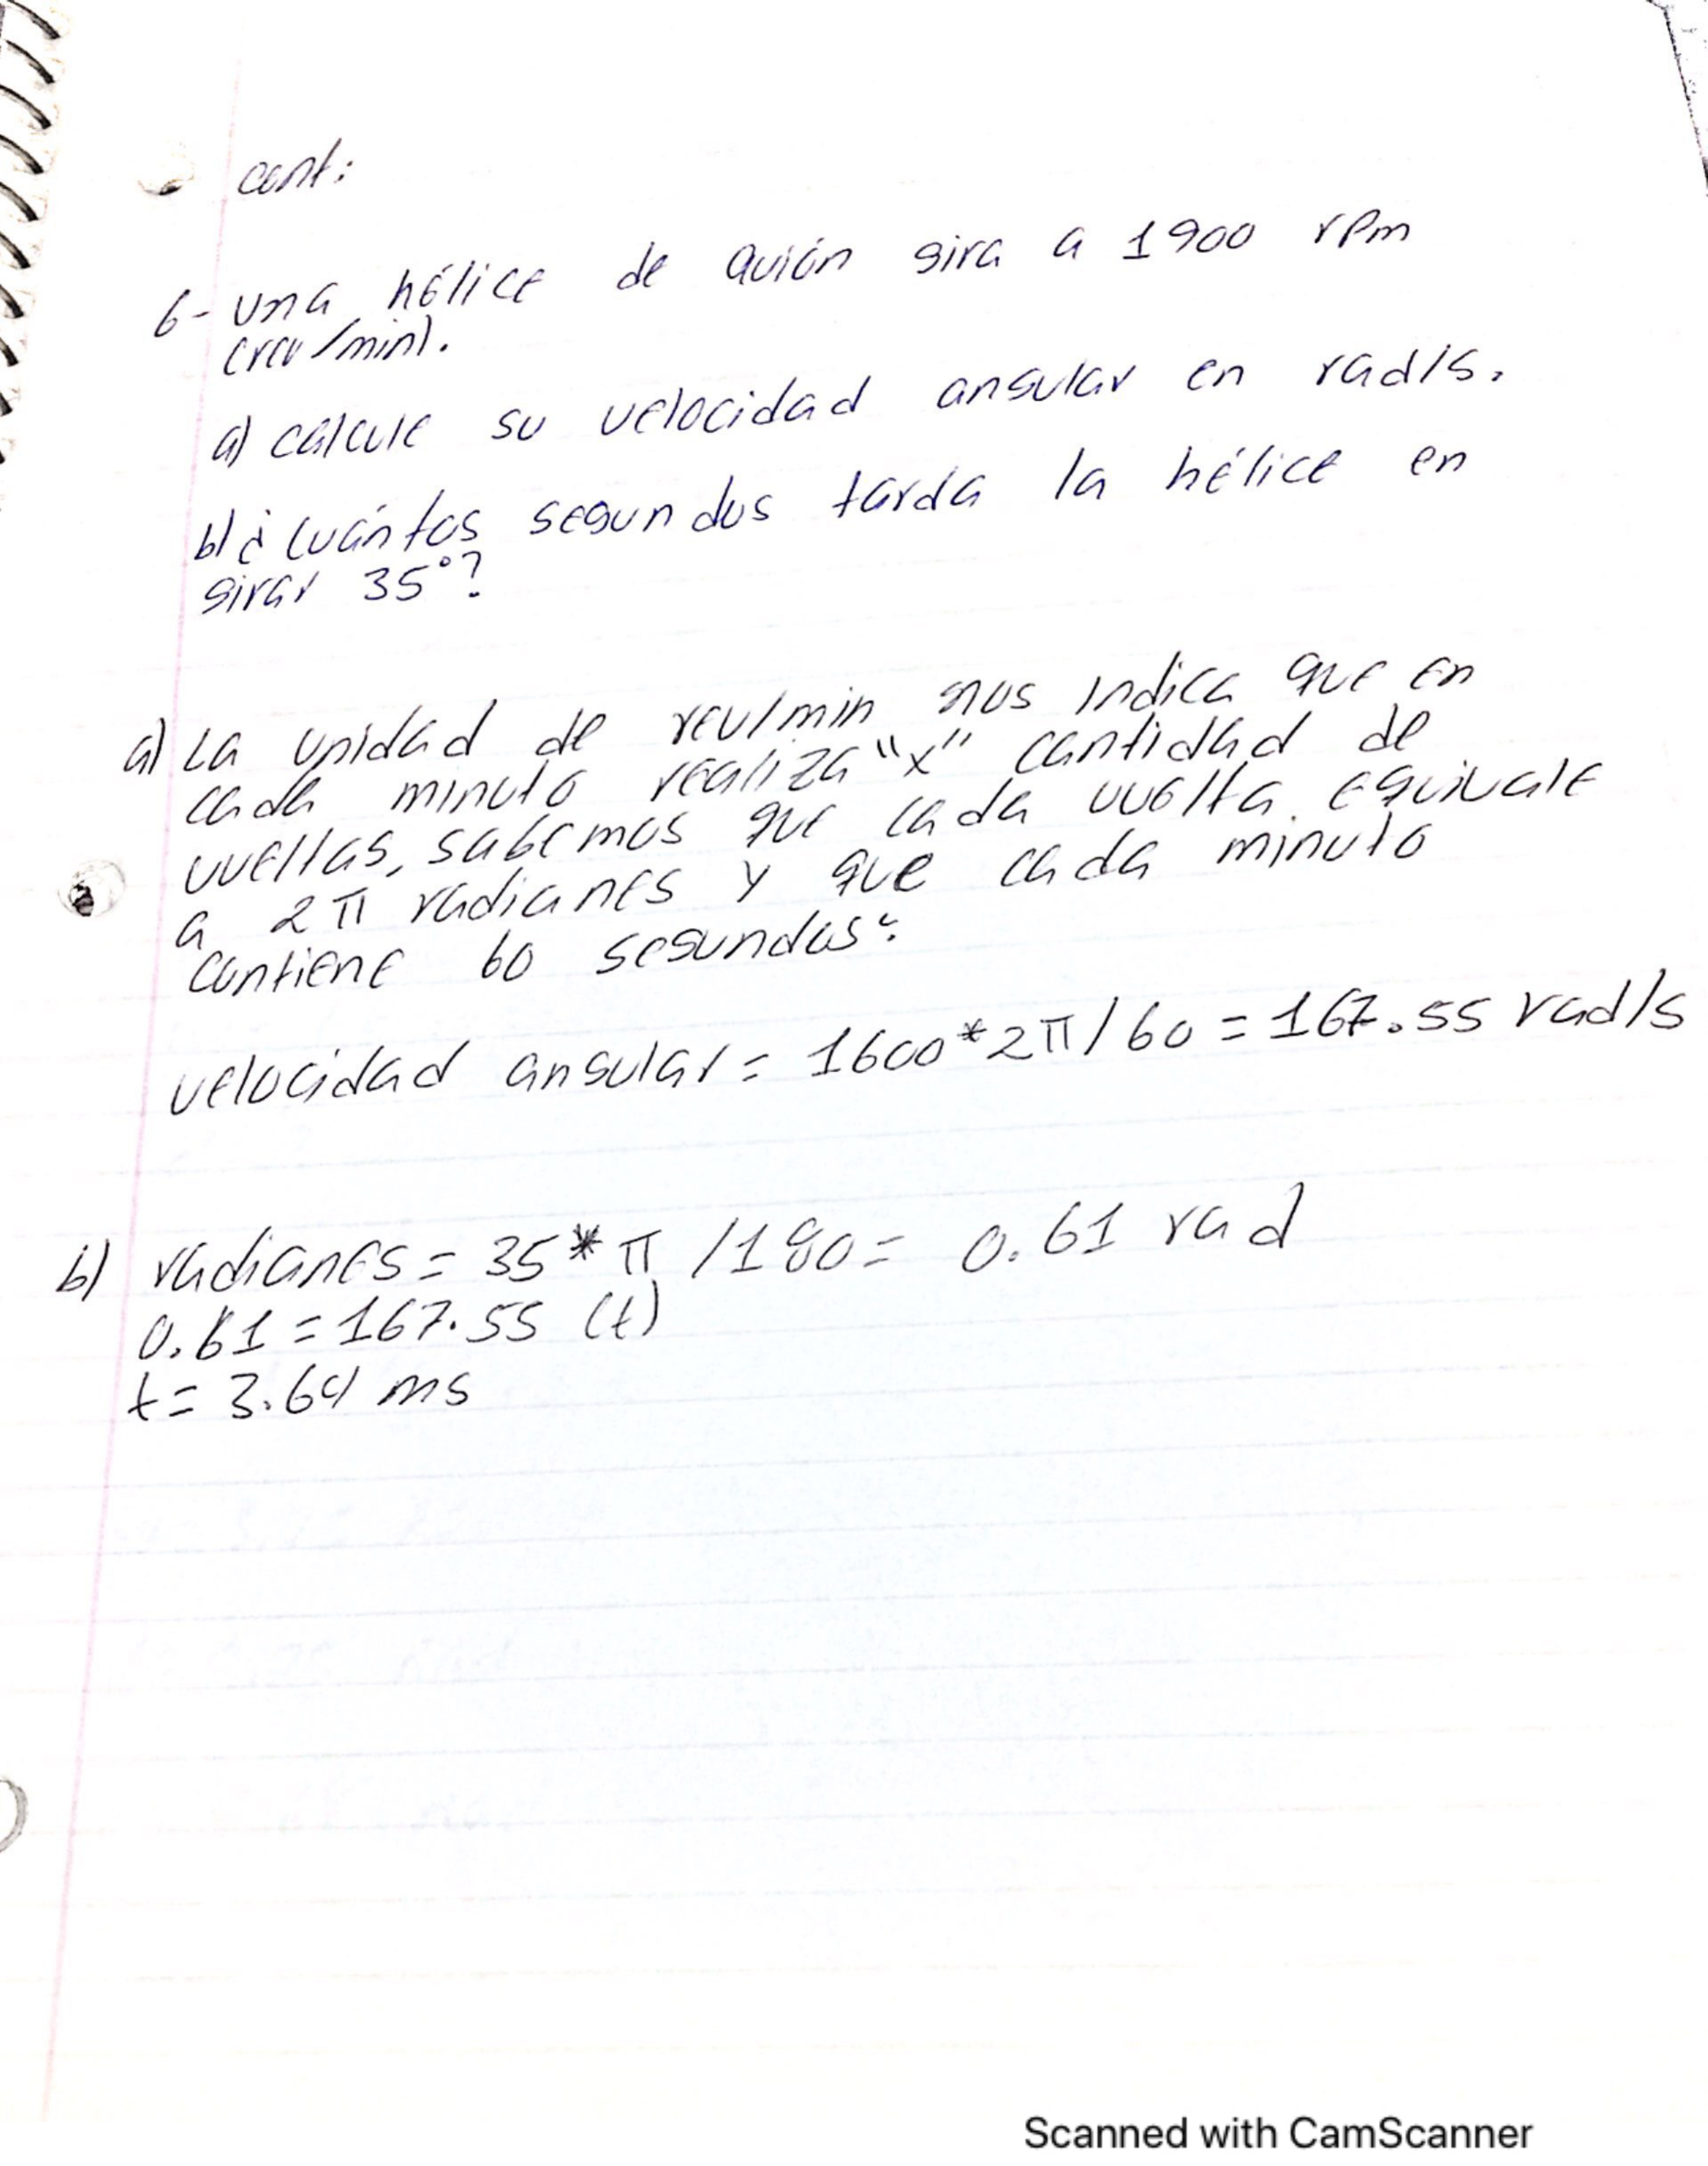 cont:
6- una hélice de avión gira a 1900 rpm
(rev/min).
a) calcule su velocidad angular en rad/s.
b) ¿cuántos segundos tarda la hélice en
girar 35°?
a) La unidad de rev/min nos indica que en
cada minuto realiza "x" cantidad de
vueltas, sabemos que cada vuelta equivale
a 2π radianes y que cada minuto
contiene 60 segundos:
velocidad angular = 1600*2π/60 = 167.55 rad/s
b) radianes = 35*π /180 = 0.61 rad
0.61 = 167.55 (t)
t = 3.64 ms
Scanned with CamScanner